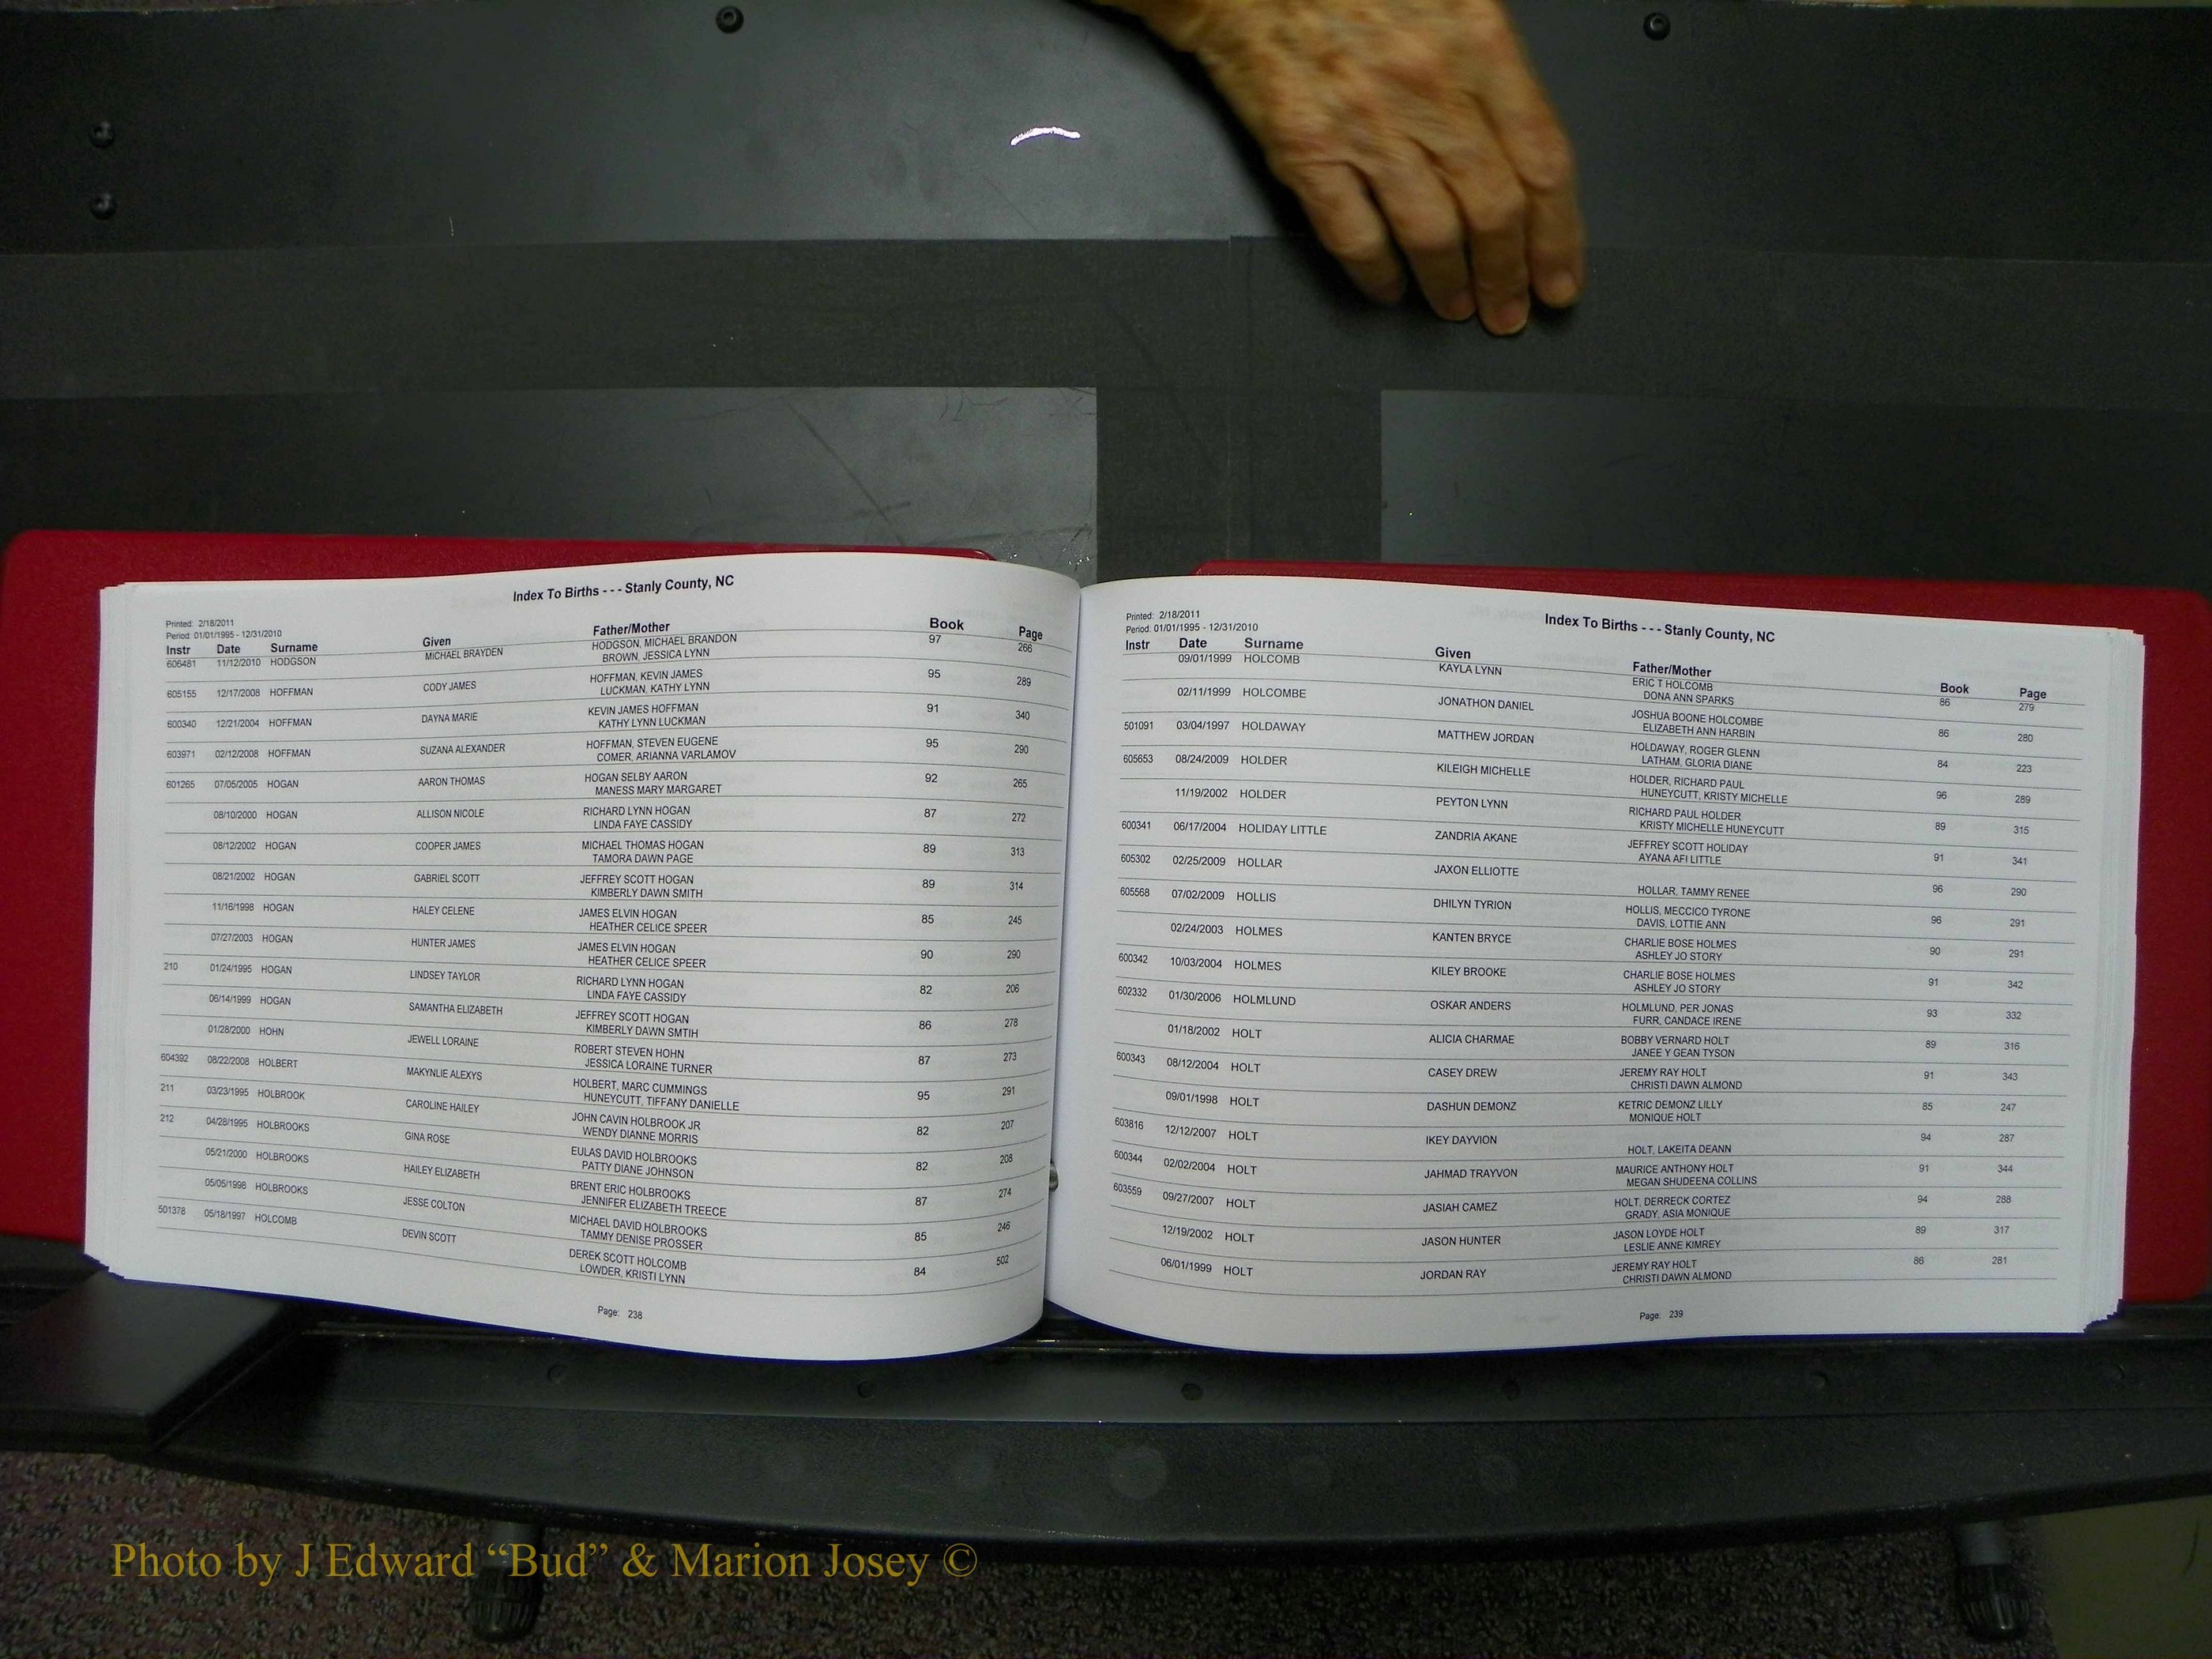 Index To Births - - - Stanly County, NC
Printed: 2/18/2011
Period: 01/01/1995 - 12/31/2010
Instr Date Surname Given Father/Mother Book Page
606481 11/12/2010 HODGSON MICHAEL BRAYDEN HODGSON, MICHAEL BRANDON 97 266
BROWN, JESSICA LYNN
605155 12/17/2008 HOFFMAN CODY JAMES HOFFMAN, KEVIN JAMES 95 289
LUCKMAN, KATHY LYNN
600340 12/21/2004 HOFFMAN DAYNA MARIE KEVIN JAMES HOFFMAN 91 340
KATHY LYNN LUCKMAN
603971 02/12/2008 HOFFMAN SUZANA ALEXANDER HOFFMAN, STEVEN EUGENE 95 290
COMER, ARIANNA VARLAMOV
601265 07/05/2005 HOGAN AARON THOMAS HOGAN SELBY AARON 92 265
MANESS MARY MARGARET
08/10/2000 HOGAN ALLISON NICOLE RICHARD LYNN HOGAN 87 272
LINDA FAYE CASSIDY
08/12/2002 HOGAN COOPER JAMES MICHAEL THOMAS HOGAN 89 313
TAMORA DAWN PAGE
08/21/2002 HOGAN GABRIEL SCOTT JEFFREY SCOTT HOGAN 89 314
KIMBERLY DAWN SMITH
11/16/1998 HOGAN HALEY CELENE JAMES ELVIN HOGAN 85 245
HEATHER CELICE SPEER
07/27/2003 HOGAN HUNTER JAMES JAMES ELVIN HOGAN 90 290
HEATHER CELICE SPEER
210 01/24/1995 HOGAN LINDSEY TAYLOR RICHARD LYNN HOGAN 82 206
LINDA FAYE CASSIDY
06/14/1999 HOGAN SAMANTHA ELIZABETH JEFFREY SCOTT HOGAN 86 278
KIMBERLY DAWN SMTIH
01/28/2000 HOHN JEWELL LORAINE ROBERT STEVEN HOHN 87 273
JESSICA LORAINE TURNER
604392 08/22/2008 HOLBERT MAKYNLIE ALEXYS HOLBERT, MARC CUMMINGS 95 291
HUNEYCUTT, TIFFANY DANIELLE
211 03/23/1995 HOLBROOK CAROLINE HAILEY JOHN CAVIN HOLBROOK JR 82 207
WENDY DIANNE MORRIS
212 04/28/1995 HOLBROOKS GINA ROSE EULAS DAVID HOLBROOKS 82 208
PATTY DIANE JOHNSON
05/21/2000 HOLBROOKS HAILEY ELIZABETH BRENT ERIC HOLBROOKS 87 274
JENNIFER ELIZABETH TREECE
05/05/1998 HOLBROOKS JESSE COLTON MICHAEL DAVID HOLBROOKS 85 246
TAMMY DENISE PROSSER
501378 05/18/1997 HOLCOMB DEVIN SCOTT DEREK SCOTT HOLCOMB 84 502
LOWDER, KRISTI LYNN
Page: 238
Index To Births - - - Stanly County, NC
Printed: 2/18/2011
Period: 01/01/1995 - 12/31/2010
Instr Date Surname Given Father/Mother Book Page
09/01/1999 HOLCOMB KAYLA LYNN ERIC T HOLCOMB 86 279
DONA ANN SPARKS
02/11/1999 HOLCOMBE JONATHON DANIEL JOSHUA BOONE HOLCOMBE 86 280
ELIZABETH ANN HARBIN
501091 03/04/1997 HOLDAWAY MATTHEW JORDAN HOLDAWAY, ROGER GLENN 84 223
LATHAM, GLORIA DIANE
605653 08/24/2009 HOLDER KILEIGH MICHELLE HOLDER, RICHARD PAUL 96 289
HUNEYCUTT, KRISTY MICHELLE
11/19/2002 HOLDER PEYTON LYNN RICHARD PAUL HOLDER 89 315
KRISTY MICHELLE HUNEYCUTT
600341 06/17/2004 HOLIDAY LITTLE ZANDRIA AKANE JEFFREY SCOTT HOLIDAY 91 341
AYANA AFI LITTLE
605302 02/25/2009 HOLLAR JAXON ELLIOTTE 96 290
HOLLAR, TAMMY RENEE
605568 07/02/2009 HOLLIS DHILYN TYRION HOLLIS, MECCICO TYRONE 96 291
DAVIS, LOTTIE ANN
02/24/2003 HOLMES KANTEN BRYCE CHARLIE BOSE HOLMES 90 291
ASHLEY JO STORY
600342 10/03/2004 HOLMES KILEY BROOKE CHARLIE BOSE HOLMES 91 342
ASHLEY JO STORY
602332 01/30/2006 HOLMLUND OSKAR ANDERS HOLMLUND, PER JONAS 93 332
FURR, CANDACE IRENE
01/18/2002 HOLT ALICIA CHARMAE BOBBY VERNARD HOLT 89 316
JANEE Y GEAN TYSON
600343 08/12/2004 HOLT CASEY DREW JEREMY RAY HOLT 91 343
CHRISTI DAWN ALMOND
09/01/1998 HOLT DASHUN DEMONZ KETRIC DEMONZ LILLY 85 247
MONIQUE HOLT
603816 12/12/2007 HOLT IKEY DAYVION 94 287
HOLT, LAKEITA DEANN
600344 02/02/2004 HOLT JAHMAD TRAYVON MAURICE ANTHONY HOLT 91 344
MEGAN SHUDEENA COLLINS
603559 09/27/2007 HOLT JASIAH CAMEZ HOLT, DERRECK CORTEZ 94 288
GRADY, ASIA MONIQUE
12/19/2002 HOLT JASON HUNTER JASON LOYDE HOLT 89 317
LESLIE ANNE KIMREY
06/01/1999 HOLT JORDAN RAY JEREMY RAY HOLT 86 281
CHRISTI DAWN ALMOND
Page: 239
Photo by J Edward “Bud” & Marion Josey ©